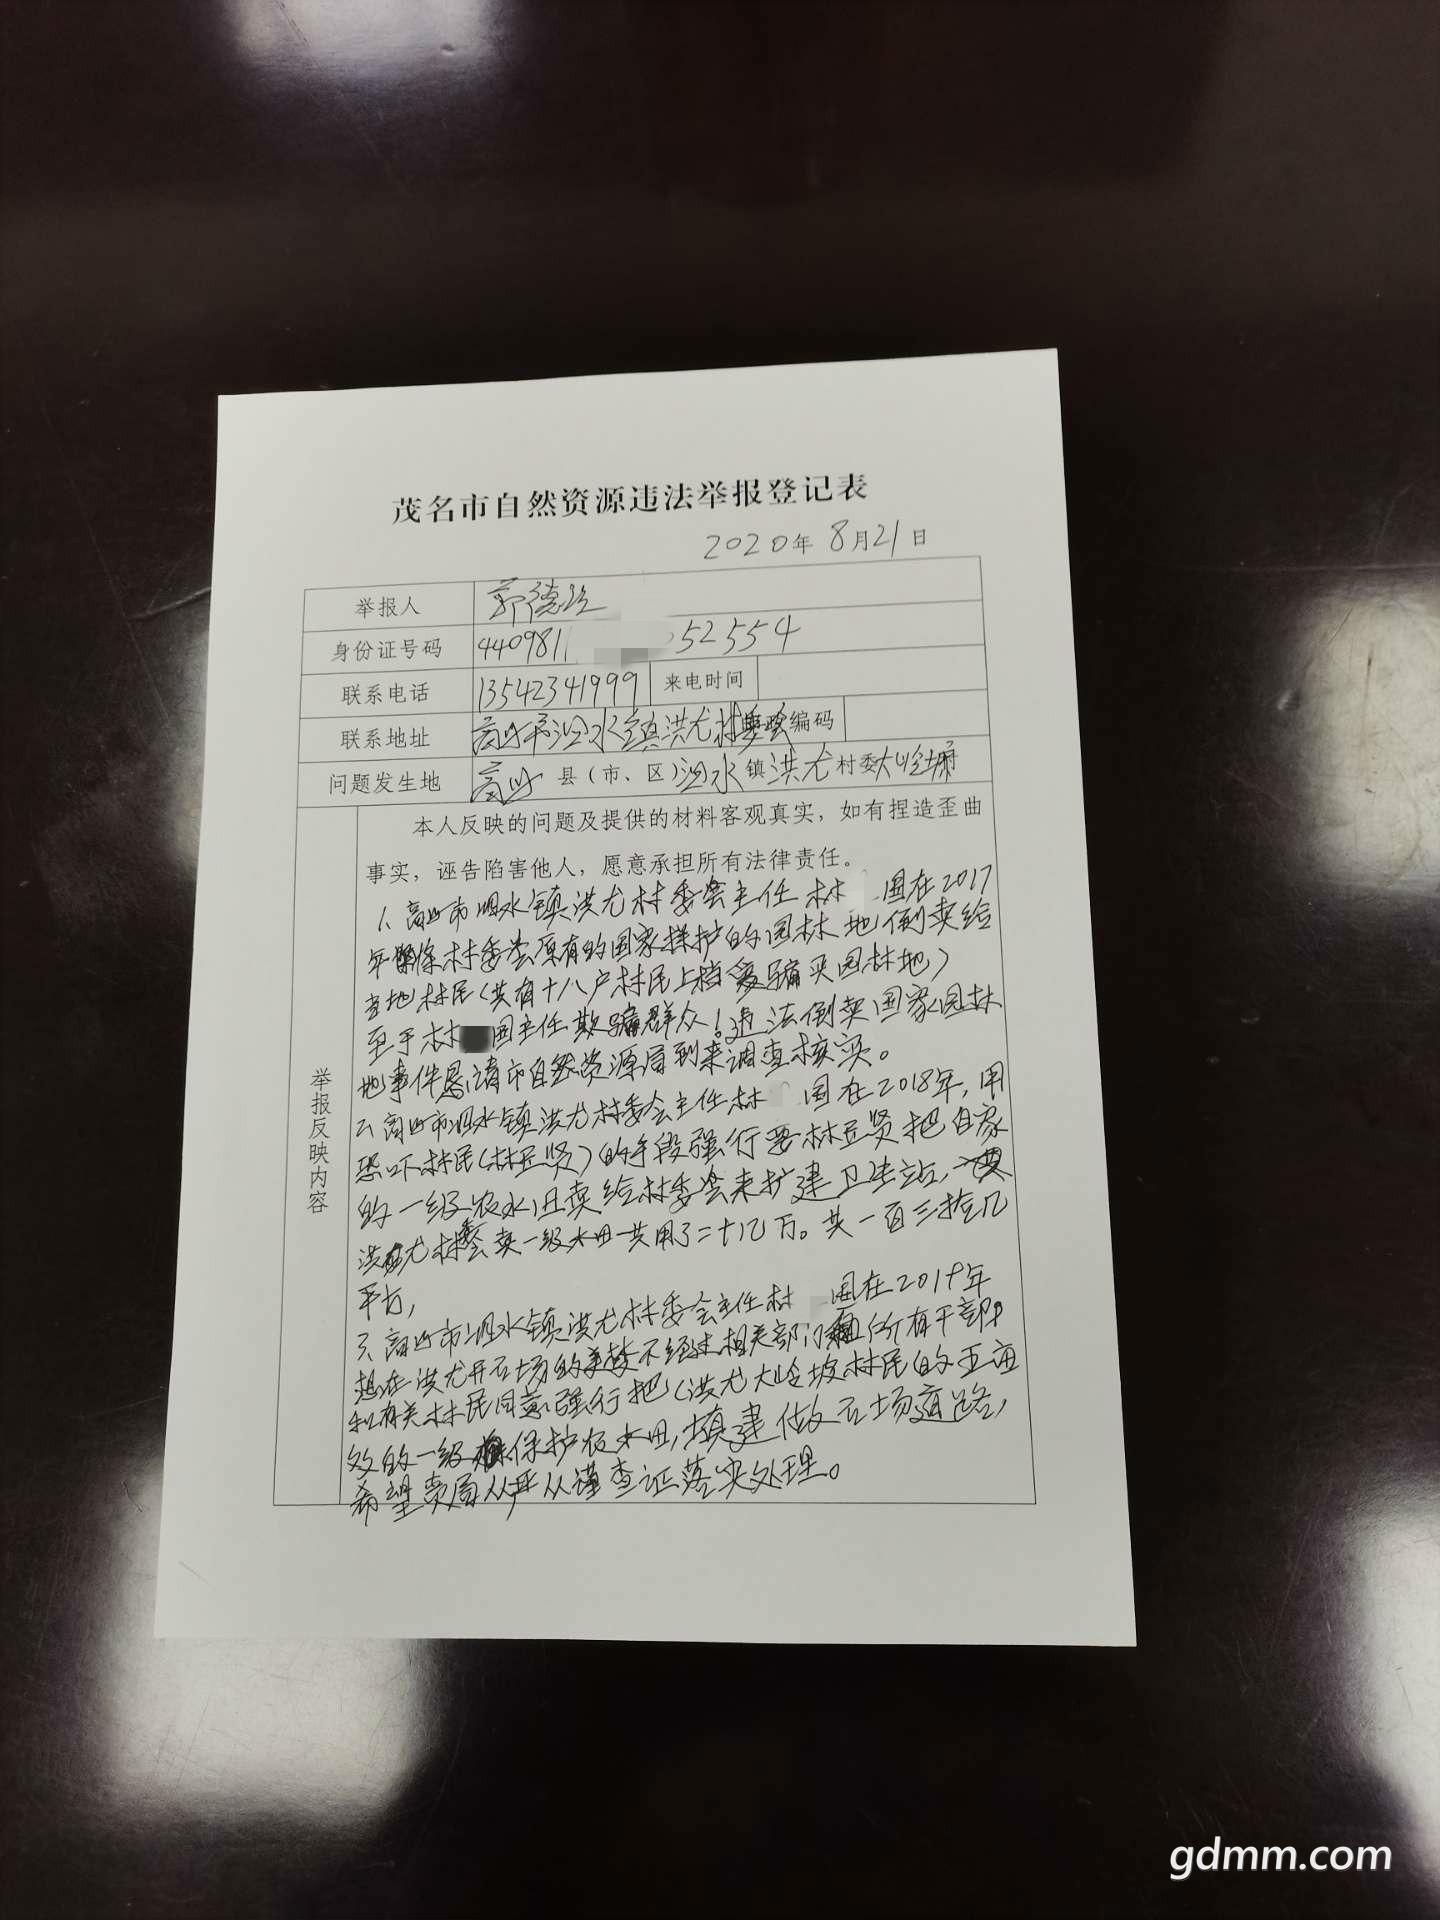 茂名市自然资源违法举报登记表
2020年 8月21日
举报人 郭德
身份证号码 440981 052554
联系电话 13542341999 来电时间
联系地址 高州市泗水镇洪尤村委会 编码
问题发生地 高州 县(市、区)泗水镇洪尤村委大岭
举报反映内容
本人反映的问题及提供的材料客观真实，如有捏造歪曲
事实，诬告陷害他人，愿意承担所有法律责任。
1、高州市泗水镇洪尤村委会主任林 国在2017
年 将村委会原有的国家保护的园林地倒卖给
当地村民(共有十八户村民上档受骗买园林地)
至于林 国主任欺骗群众！违法倒卖国家园林
地事件恳请市自然资源局到来调查核实。
2、高州市泗水镇洪尤村委会主任林 国在2018年，用
恐吓村民(林 贤)的手段强行要林 贤把自家
的一级农水田卖给村委会来扩建卫生站，
洪尤村委会卖一级水田一共用了二十几万。共一百三拾几
平方，
3、高州市泗水镇洪尤村委会主任林 国在2019年
想在洪尤开石场的 不经过相关部门 所有干部
和有关村民同意强行把(洪尤大岭坡村民的五亩
的一级保护农水田，填建做石场道路，
希望贵局从严从谨查证落实处理。
gdmm.com